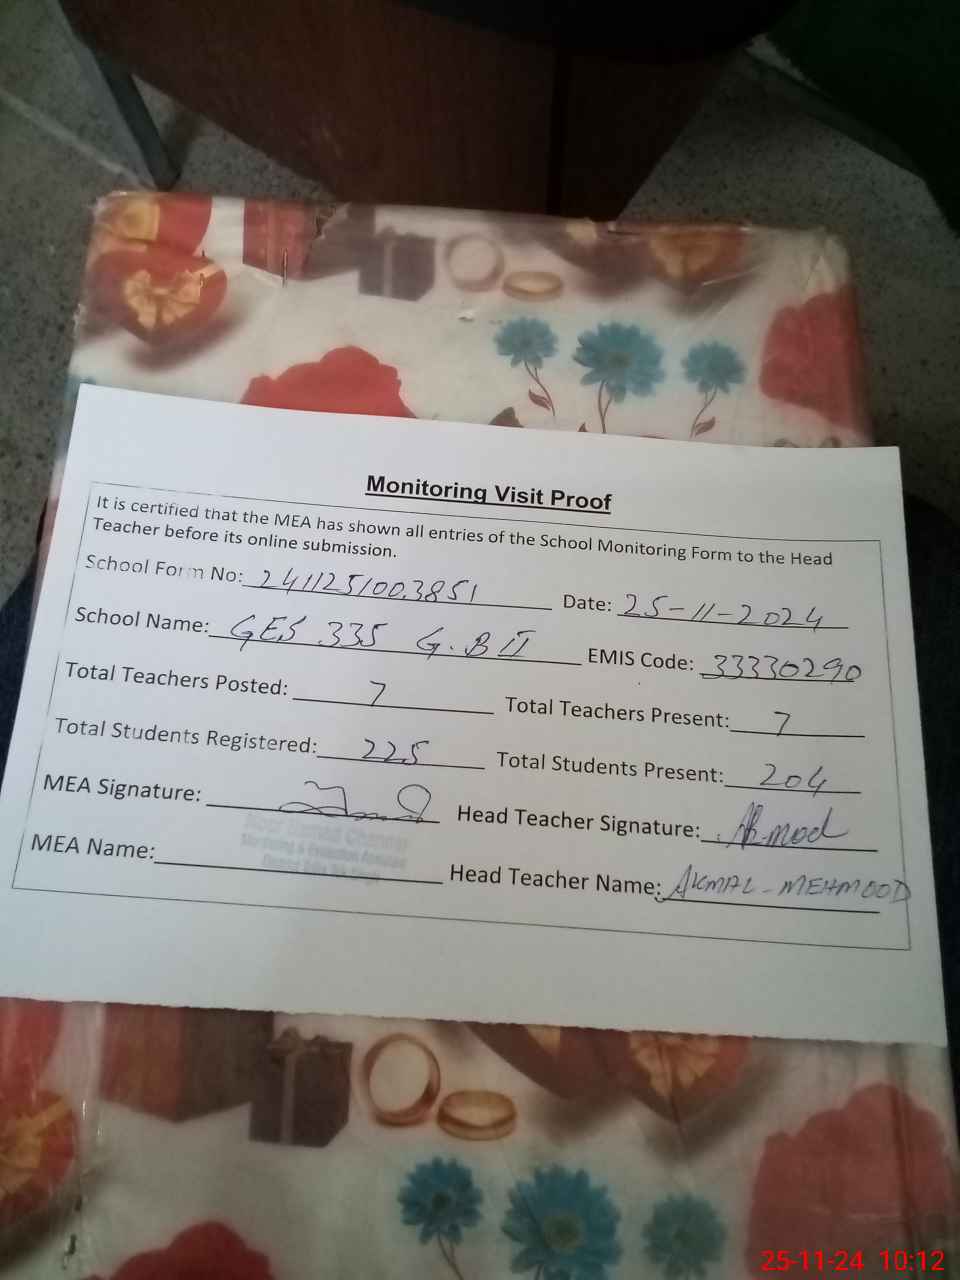 Monitoring Visit Proof
It is certified that the MEA has shown all entries of the School Monitoring Form to the Head
Teacher before its online submission.
School Form No: 241125100.3851 Date: 25-11-2024
School Name: GES 335 G.B II EMIS Code: 33330290
Total Teachers Posted: 7 Total Teachers Present: 7
Total Students Registered: 225 Total Students Present: 204
MEA Signature: Head Teacher Signature:
MEA Name: Head Teacher Name: AKMAL-MEHMOOD
Monitoring & Evaluation Assistant
25-11-24 10:12